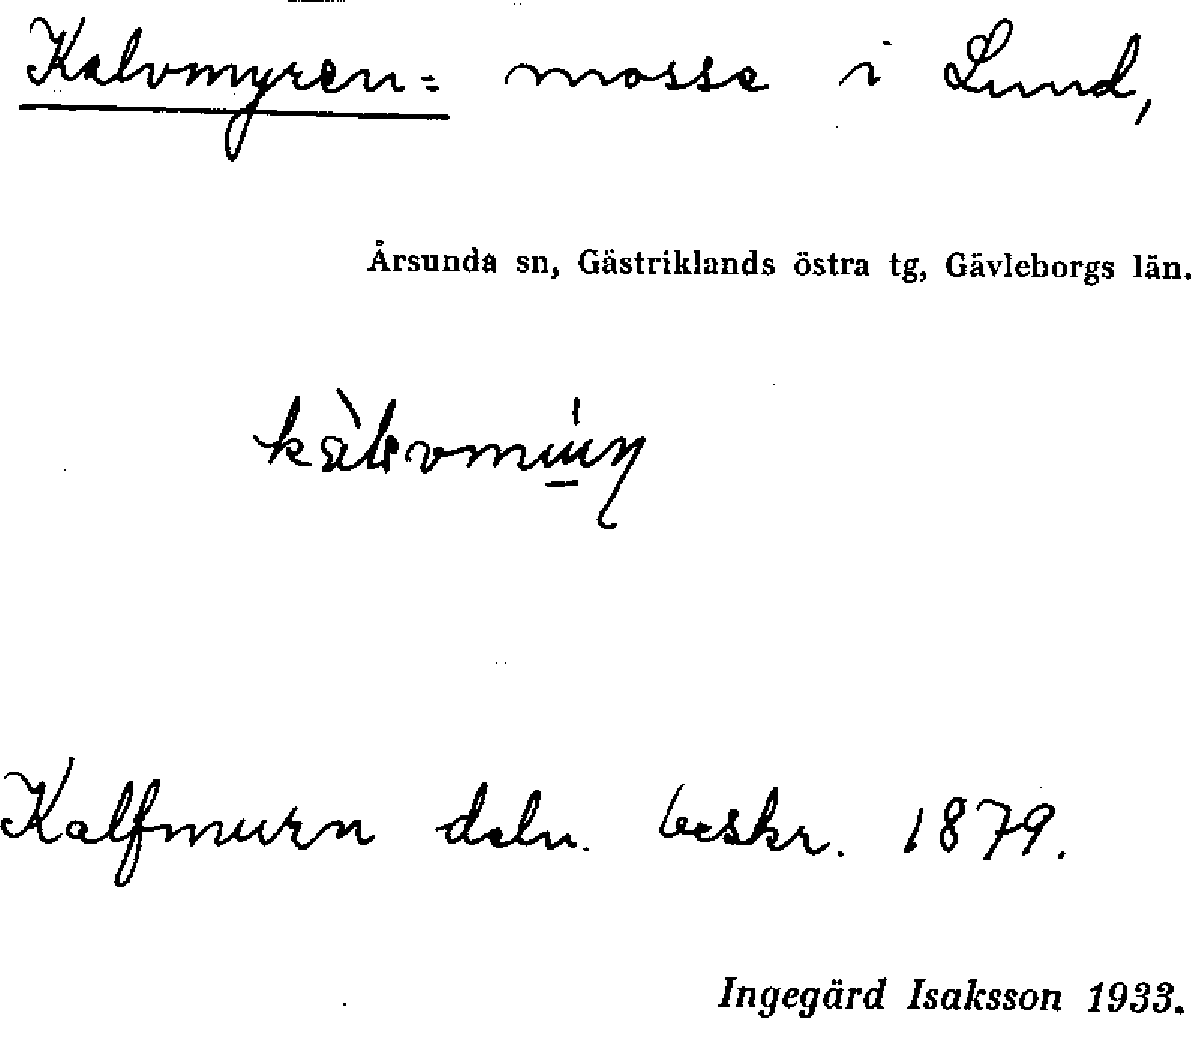 Kalvmyren: mosse i Lund,
Årsunda sn, Gästriklands östra tg, Gävleborgs län.
Kalfmurn deln. beskr. 1879.
Ingegärd Isaksson 1933.